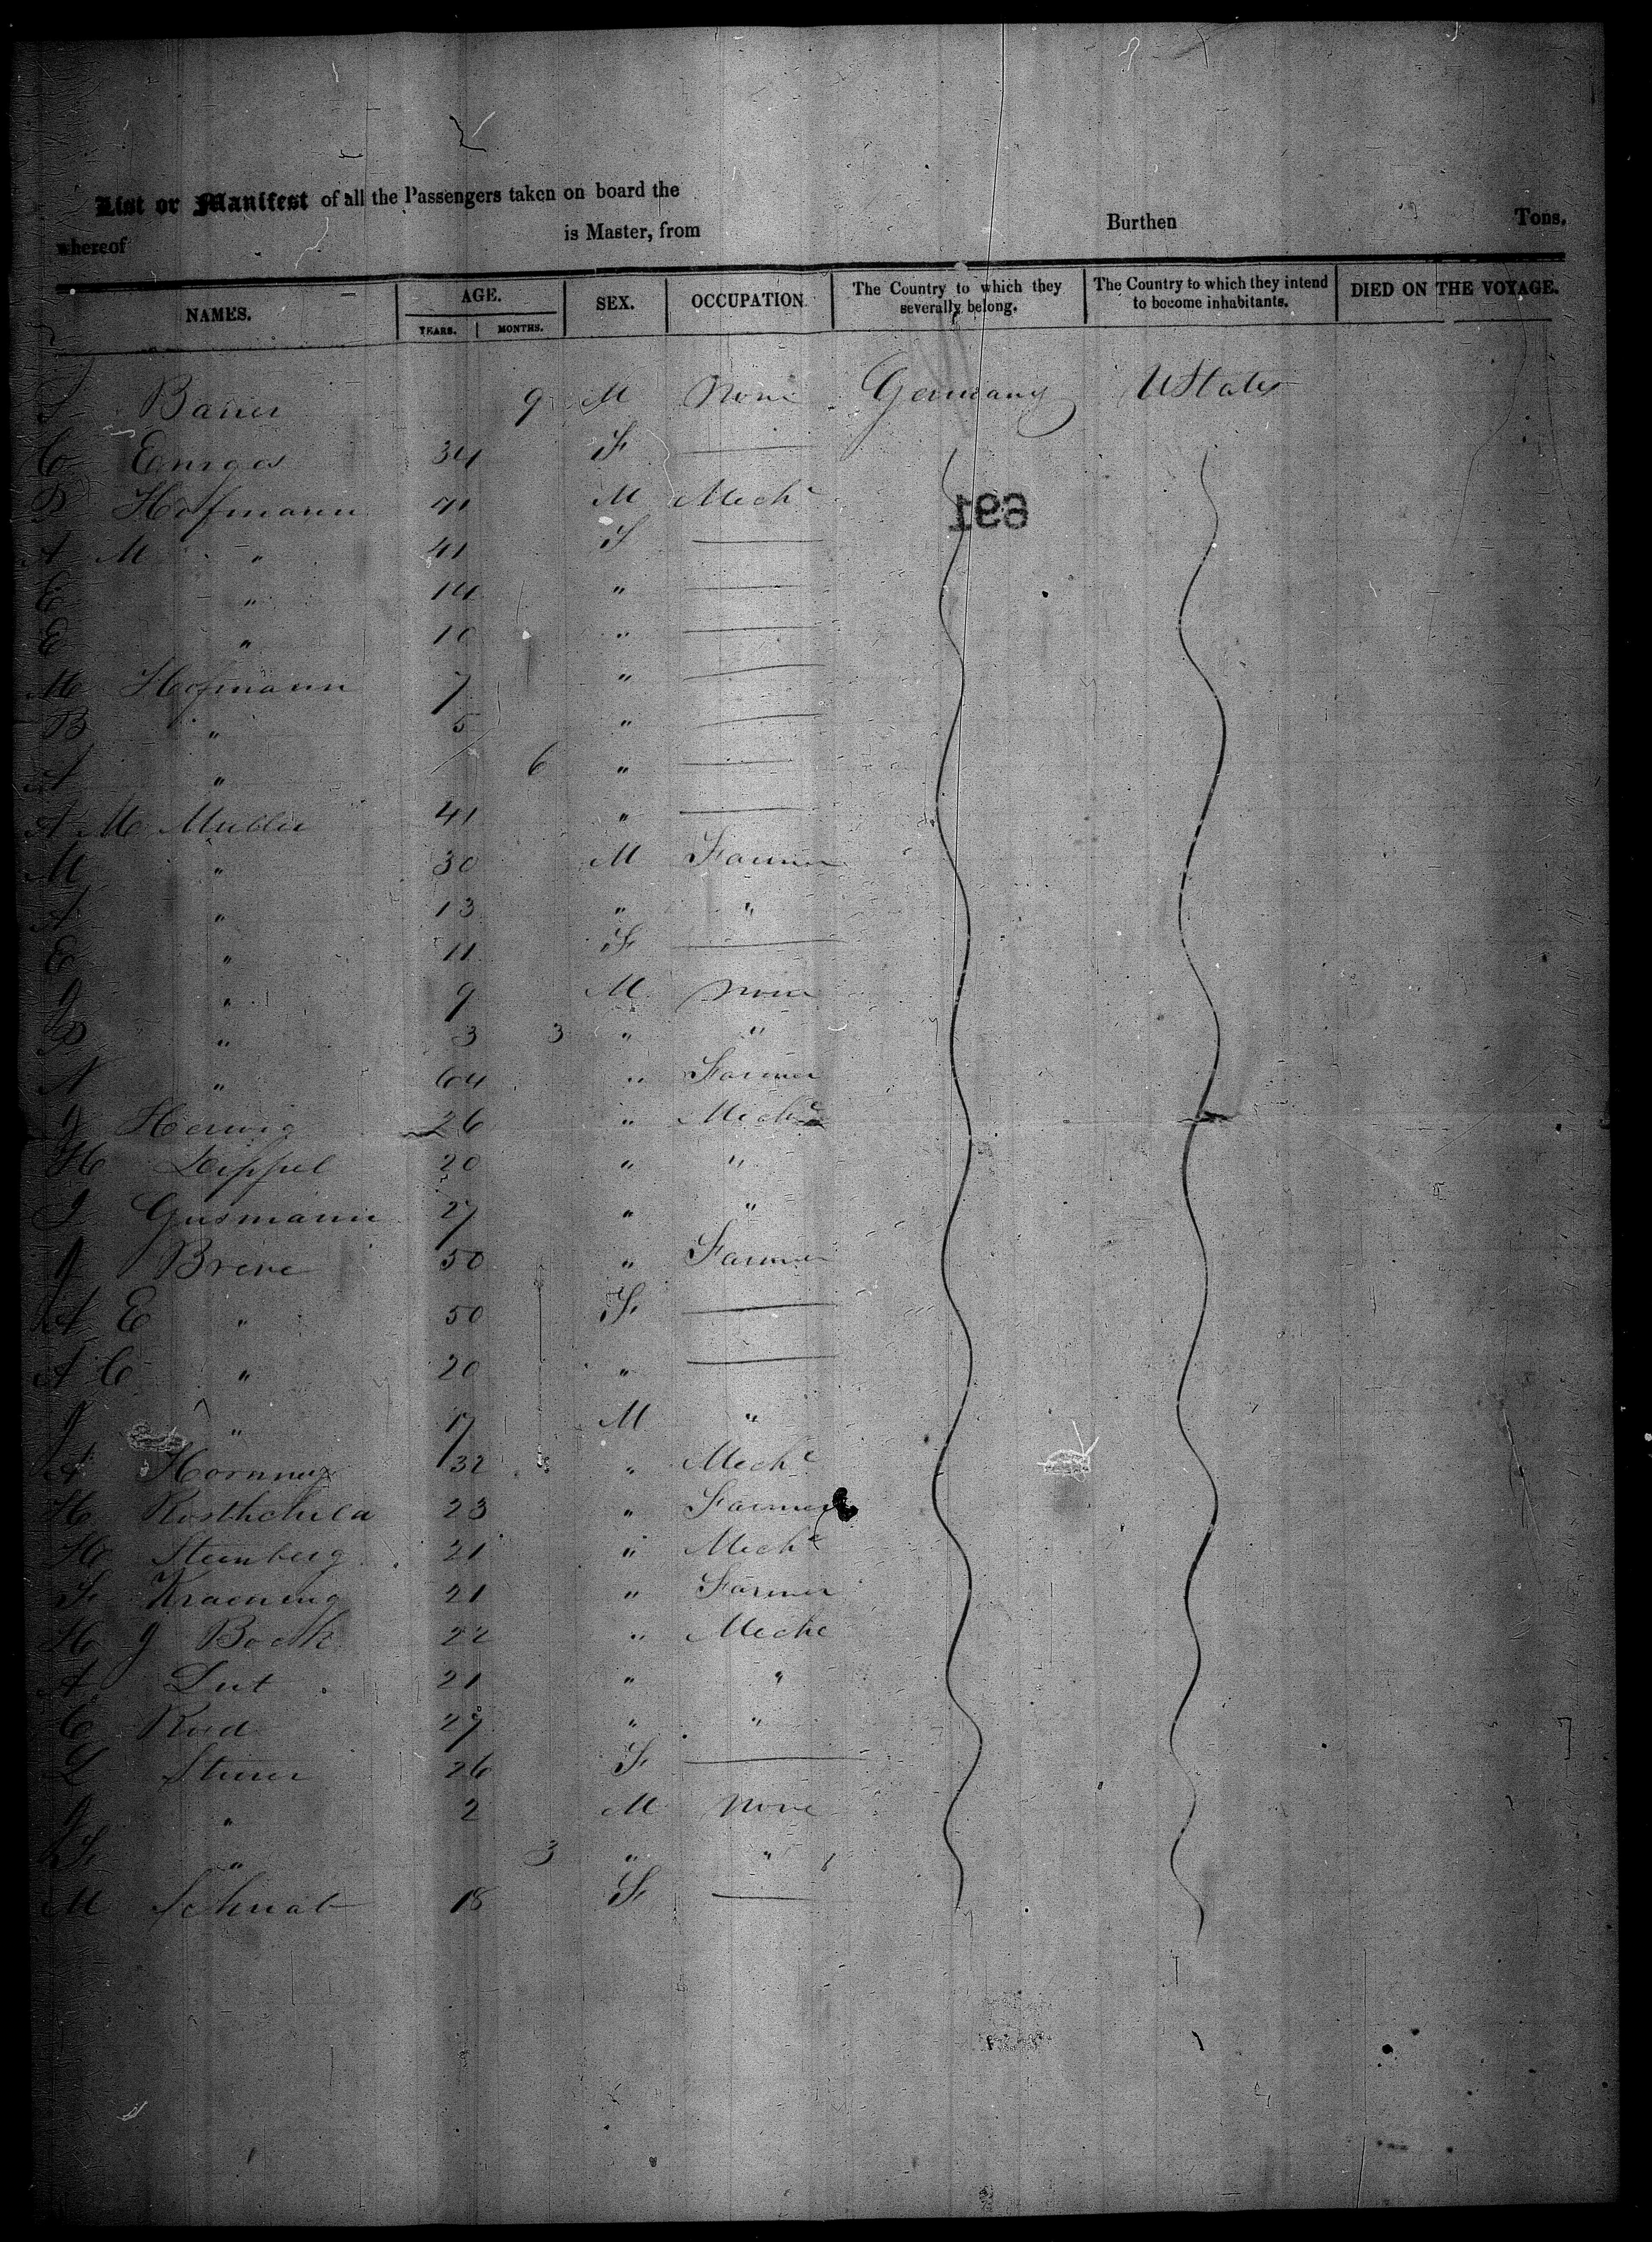 List or Manifest of all the Passengers taken on board the
whereof is Master, from Burthen Tons,
NAMES. AGE. SEX. OCCUPATION. The Country to which they severally belong. The Country to which they intend to become inhabitants. DIED ON THE VOYAGE.
YEARS. MONTHS.
Bauer 9 M None Germany U States
34 F —
691
Hofmann 41 M Mechc
A M " 41 F —
E " 14 " —
E " 10 " —
M Hofmann 7 " —
B " 5 " —
A " 6 " —
A M Muller 41 " —
M " 30 M Farmer
A " 13 " "
E " 11 F —
J " 9 M None
P " 3 3 " "
N " 64 " Farmer
J Herwig 26 " Mechc
H Dippel 20 " "
J Gusmann 27 " "
J Brere 50 " Farmer
A E " 50 F —
A C " 20 " —
J " 17 M "
A 32 " Mechc
H Rosthchild 23 " Farmer
H Steinberg 21 " Mechc
F Kraening 21 " Farmer
H J Bock 22 " Meche
A 21 " "
C 27 " "
L 26 F —
J " 2 M None
F " 3 " "
M Schnab 18 F —